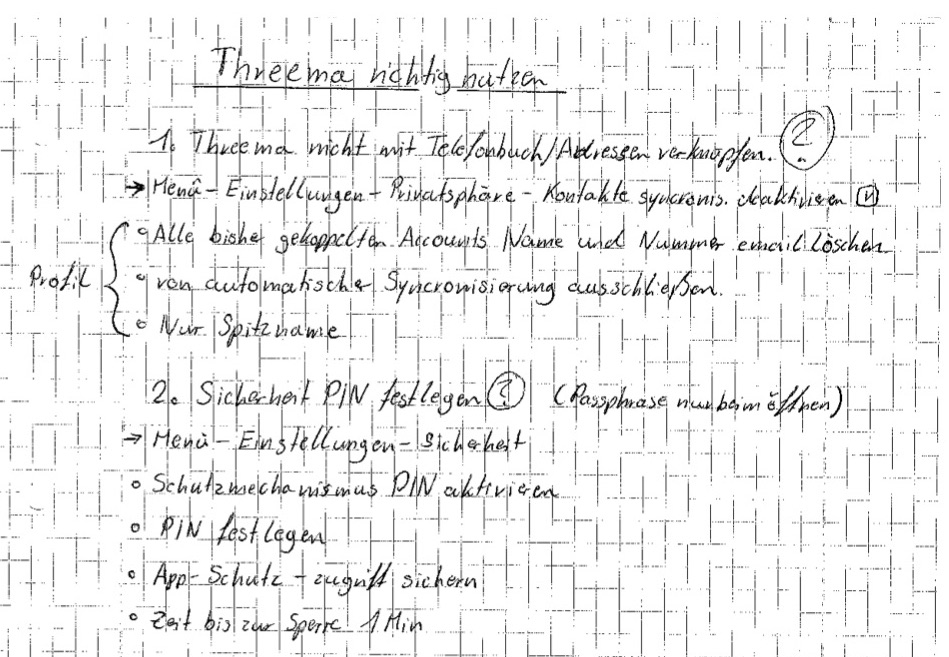 Threema richtig nutzen
1. Threema nicht mit Telefonbuch/Adressen verknüpfen. ?
→ Menü - Einstellungen - Privatsphäre - Kontakte syncronis. deaktivieren
Profil
° Alle bisher gekoppelten Accounts Name und Nummer email löschen
° von automatische Syncronisierung ausschließen.
° Nur Spitzname
2. Sicherheit PIN festlegen ? (Passphrase nur beim öffnen)
→ Menü - Einstellungen - Sicherheit
° Schutzmechanismus PIN aktivieren
° PIN festlegen
° App-Schutz - zugriff sichern
° Zeit bis zur Sperre 1 Min